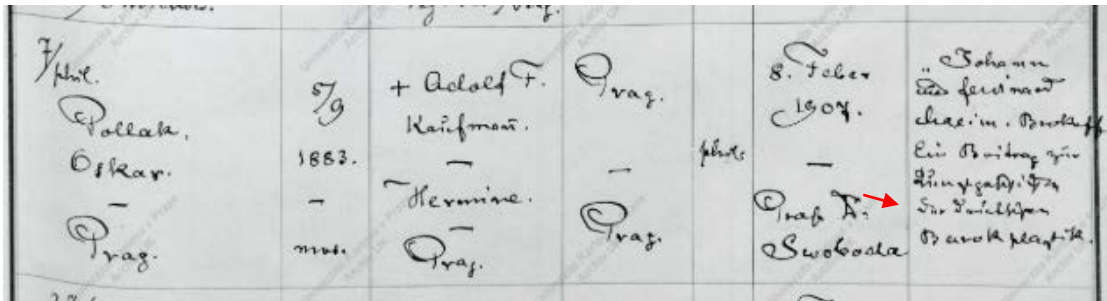 7/phil.
Pollak,
Oskar.
—
Prag.
5/9
1883.
—
mos.
+ Adolf F.
Kaufmann.
—
Hermine.
—
Prag.
Prag.
—
Prag.
phil.
8. Feber
1907.
—
Swoboda
„Johann
und Ferdinand
Maxim. Brokoff
Ein Beitrag zur
der deutschen
Barokplastik.